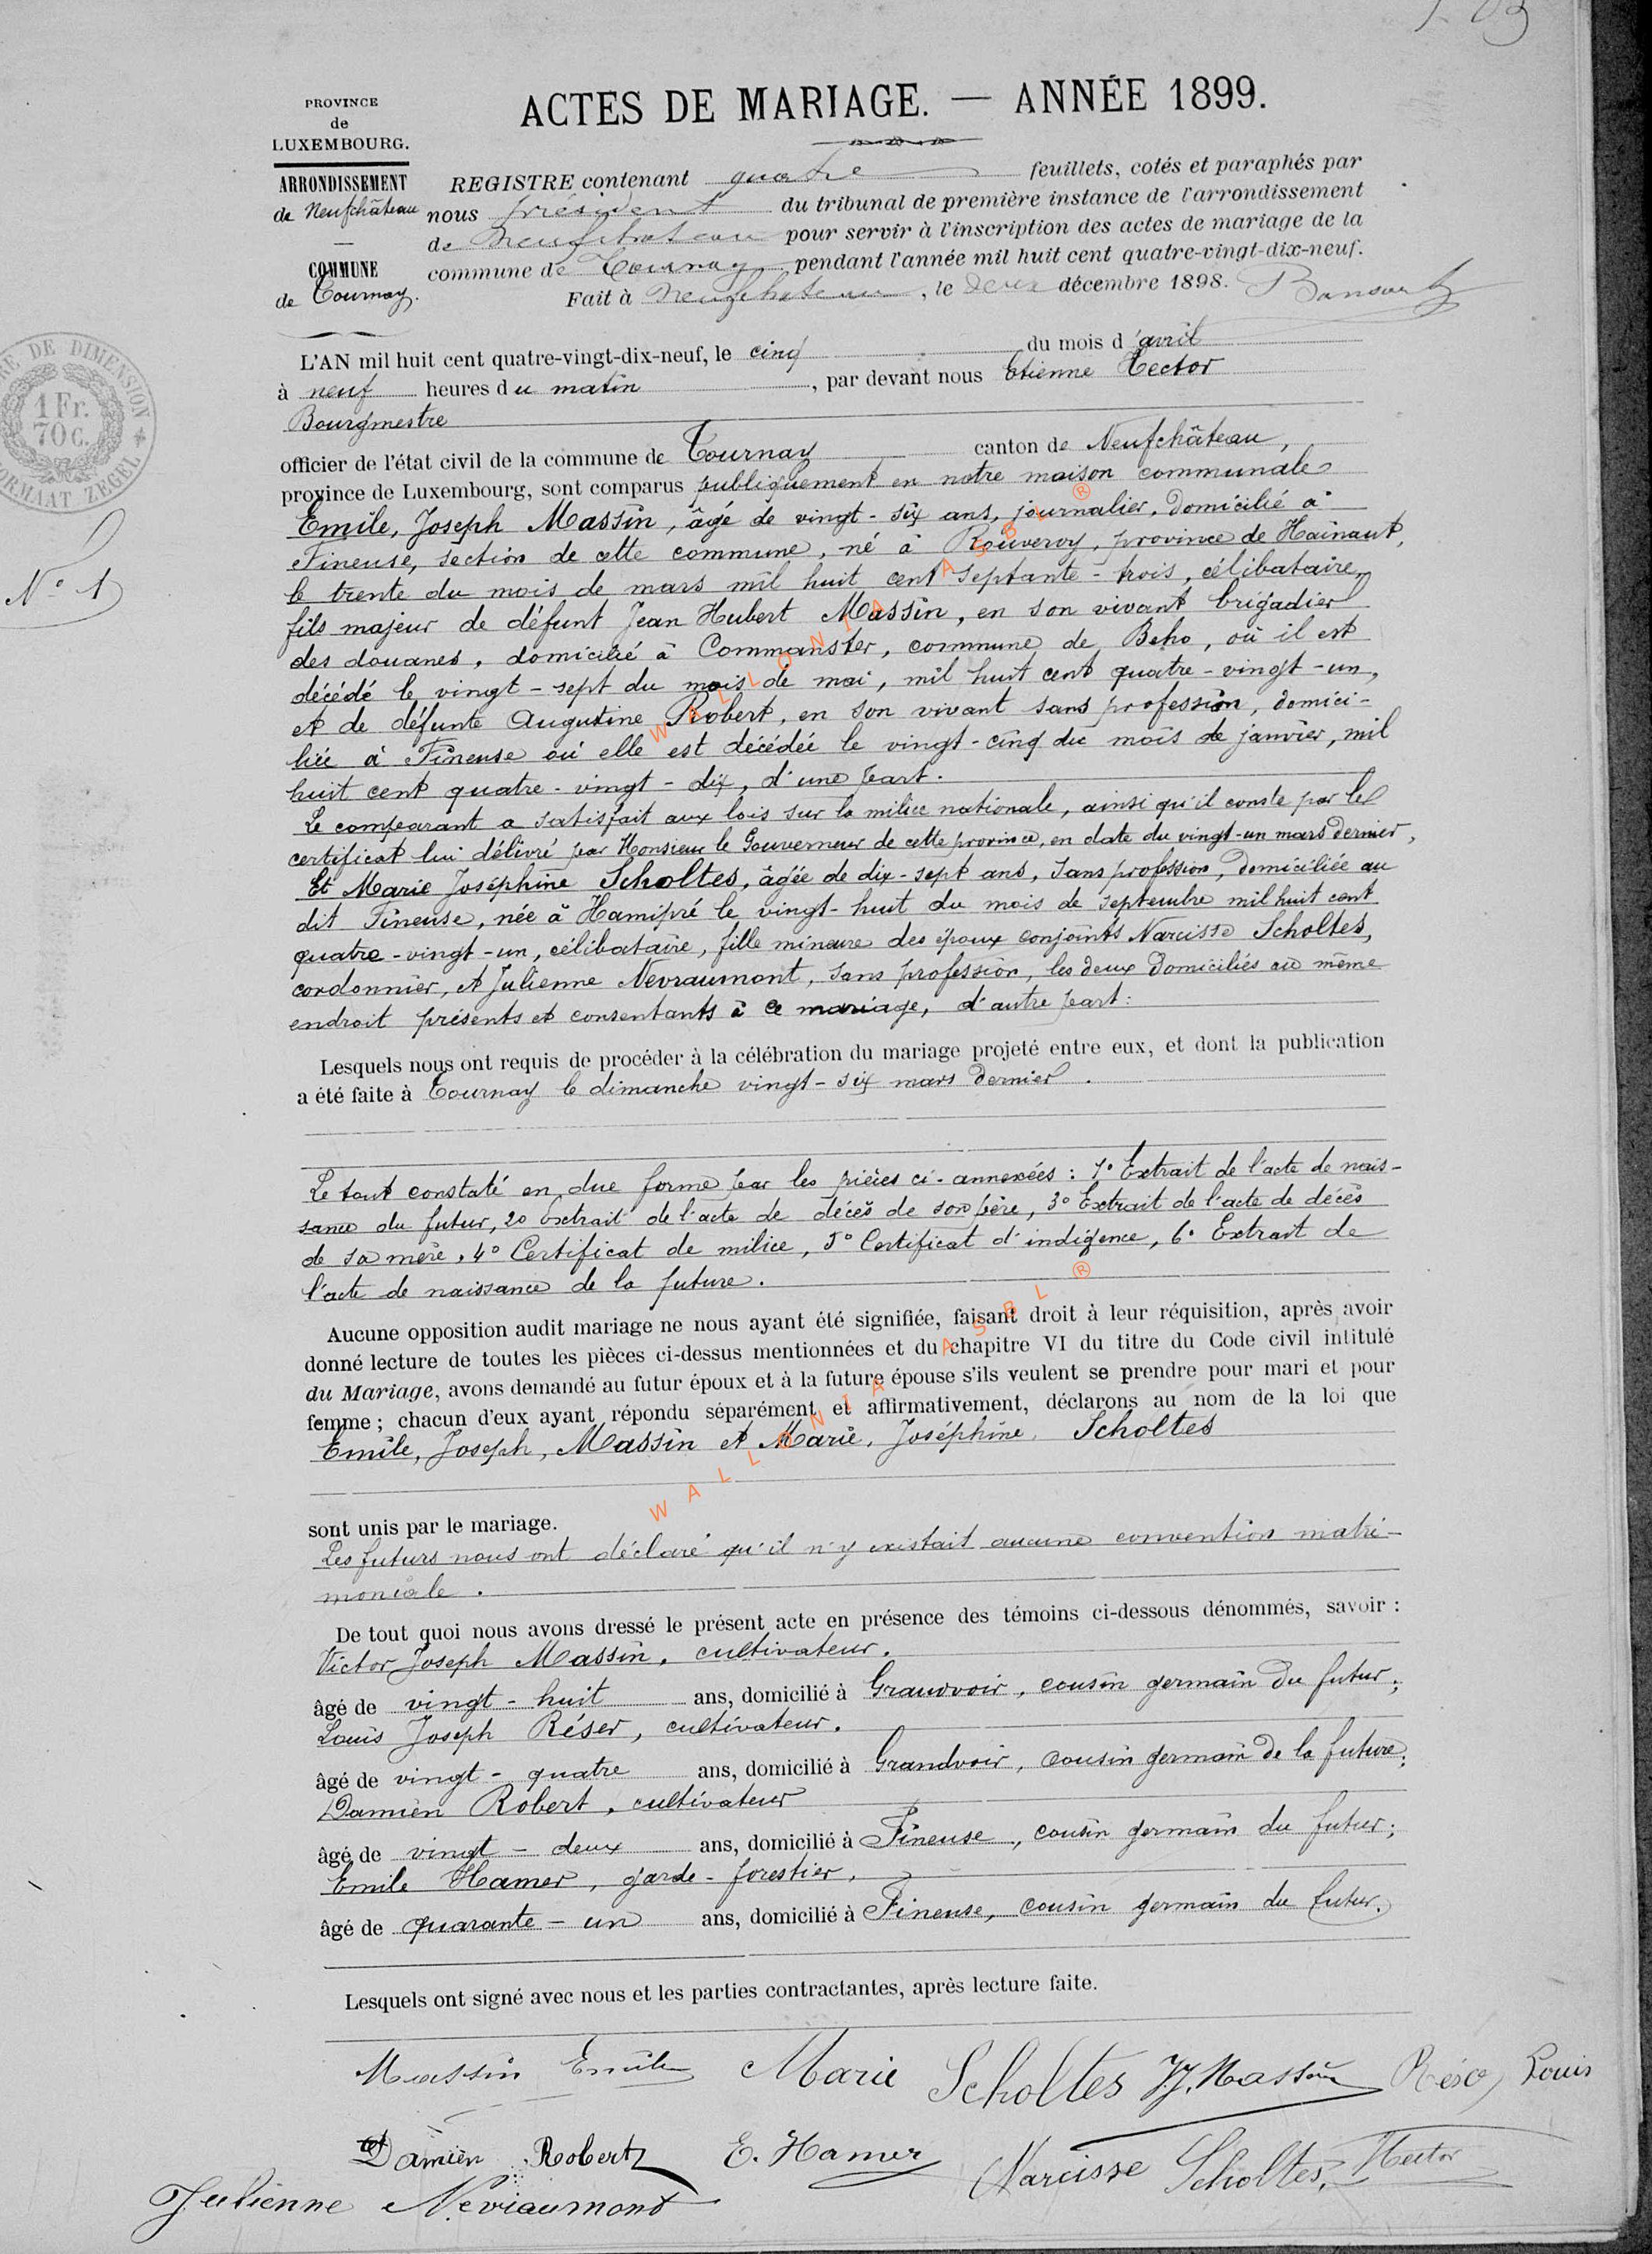 ACTES DE MARIAGE. — ANNÉE 1899.
PROVINCE
de
LUXEMBOURG.
ARRONDISSEMENT
de Neufchâteau
COMMUNE
de Tournay.
REGISTRE contenant quatre feuillets, cotés et paraphés par
nous président du tribunal de première instance de l'arrondissement
de Neufchateau pour servir à l'inscription des actes de mariage de la
commune de Tournay pendant l'année mil huit cent quatre-vingt-dix-neuf.
Fait à Neufchateau, le deux décembre 1898.
1 Fr.
70 C.
N° 1
L'AN mil huit cent quatre-vingt-dix-neuf, le cinq du mois d'avril
à neuf heures du matin, par devant nous Etienne Hector
Bourgmestre
officier de l'état civil de la commune de Tournay canton de Neufchâteau,
province de Luxembourg, sont comparus publiquement en notre maison communale
Emile, Joseph Massin, âgé de vingt-six ans, journalier, domicilié à
Fineuse, section de cette commune, né à Rouveroy, province de Hainaut,
le trente du mois de mars mil huit cent septante-trois, célibataire,
fils majeur de défunt Jean Hubert Massin, en son vivant brigadier
des douanes, domicilié à Commanster, commune de Beho, où il est
décédé le vingt-sept du mois de mai, mil huit cent quatre-vingt-un,
et de défunte Augustine Robert, en son vivant sans profession, domici-
liée à Fineuse où elle est décédée le vingt-cinq du mois de janvier, mil
huit cent quatre-vingt-dix, d'une part.
Le comparant a satisfait aux lois sur la milice nationale, ainsi qu'il conste par le
certificat lui délivré par Monsieur le Gouverneur de cette province, en date du vingt-un mars dernier,
Et Marie Joséphine Scholtes, âgée de dix-sept ans, sans profession, domiciliée au
dit Fineuse, née à Hamipré le vingt-huit du mois de septembre mil huit cent
quatre-vingt-un, célibataire, fille mineure des époux conjoints Narcisse Scholtes,
cordonnier, et Julienne Nevraumont, sans profession, les deux domiciliés au même
endroit présents et consentants à ce mariage, d'autre part:
Lesquels nous ont requis de procéder à la célébration du mariage projeté entre eux, et dont la publication
a été faite à Tournay le dimanche vingt-six mars dernier.
Le tout constaté en due forme par les pièces ci-annexées: 1° Extrait de l'acte de nais-
sance du futur, 2° Extrait de l'acte de décès de son père, 3° Extrait de l'acte de décès
de sa mère, 4° Certificat de milice, 5° Certificat d'indigence, 6° Extrait de
l'acte de naissance de la future.
Aucune opposition audit mariage ne nous ayant été signifiée, faisant droit à leur réquisition, après avoir
donné lecture de toutes les pièces ci-dessus mentionnées et du chapitre VI du titre du Code civil intitulé
du Mariage, avons demandé au futur époux et à la future épouse s'ils veulent se prendre pour mari et pour
femme; chacun d'eux ayant répondu séparément et affirmativement, déclarons au nom de la loi que
Emile, Joseph, Massin et Marie, Joséphine, Scholtes
sont unis par le mariage.
Les futurs nous ont déclaré qu'il n'y existait aucune convention matri-
moniale.
De tout quoi nous avons dressé le présent acte en présence des témoins ci-dessous dénommés, savoir:
Victor Joseph Massin, cultivateur.
âgé de vingt-huit ans, domicilié à Grandvoir, cousin germain du futur;
Louis Joseph Réser, cultivateur.
âgé de vingt-quatre ans, domicilié à Grandvoir, cousin germain de la future;
Damien Robert, cultivateur
âgé de vingt-deux ans, domicilié à Fineuse, cousin germain du futur;
Emile Hamer, garde-forestier,
âgé de quarante-un ans, domicilié à Fineuse, cousin germain du futur.
Lesquels ont signé avec nous et les parties contractantes, après lecture faite.
Massin Emile Marie Scholtes V.J. Massin Louis
Damien Robert E. Hamer Narcisse Scholtes, Hector
Julienne Nevraumont
WALLONIA ASBL ®
WALLONIA ASBL ®